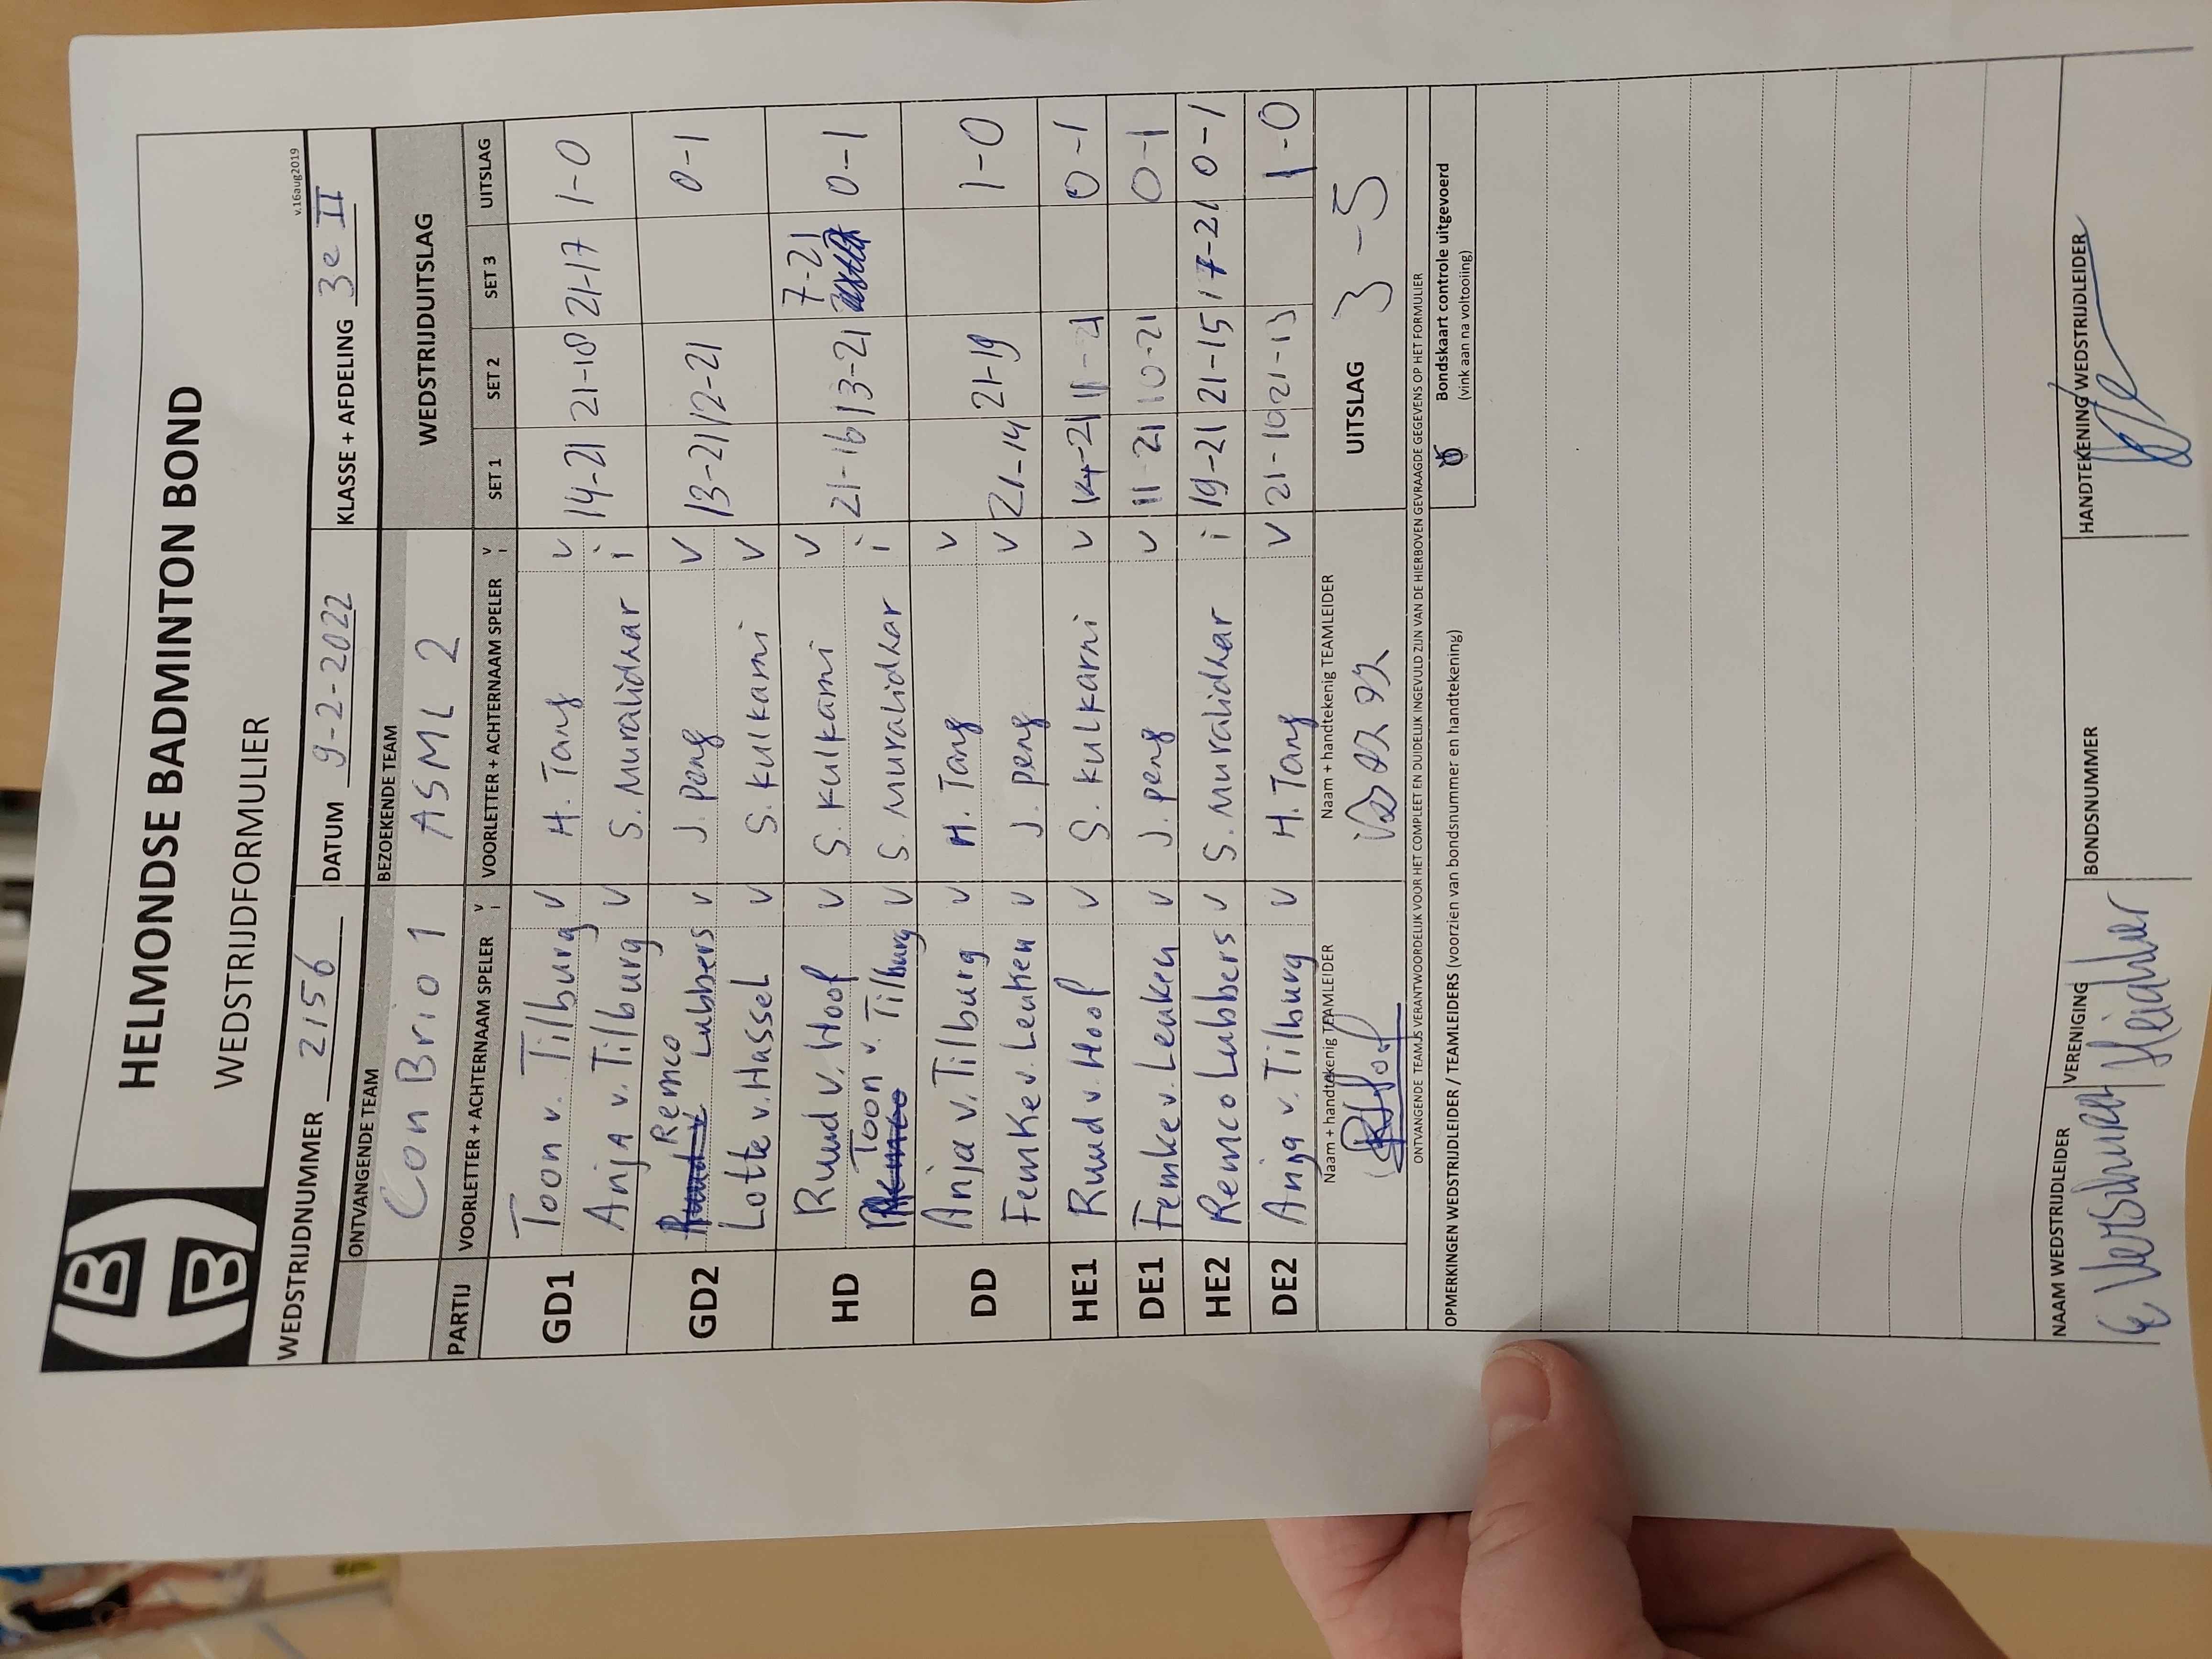 HELMONDSE BADMINTON BOND
WEDSTRIJDFORMULIER
v.16aug2019
WEDSTRIJDNUMMER 2156 DATUM 9-2-2022 KLASSE + AFDELING 3e II
ONTVANGENDE TEAM BEZOEKENDE TEAM WEDSTRIJDUITSLAG
Con Brio 1 ASML 2
PARTIJ VOORLETTER + ACHTERNAAM SPELER V I VOORLETTER + ACHTERNAAM SPELER V I SET 1 SET 2 SET 3 UITSLAG
GD1 Toon v. Tilburg v H. Tang v 14-21 21-18 21-17 1-0
Anja v. Tilburg v S. Muralidhar i
GD2 Remco Lubbers v J. Peng v 13-21 12-21 0-1
Lotte v. Hassel v S. Kulkarni v
HD Ruud v. Hoof v S. Kulkarni v 21-16 13-21 7-21 0-1
Toon v. Tilburg v S. Muralidhar i
DD Anja v. Tilburg v H. Tang v 21-14 21-19 1-0
Femke v. Leuken v J. Peng v
HE1 Ruud v. Hoof v S. Kulkarni v 14-21 11-21 0-1
DE1 Femke v. Leuken v J. Peng v 11-21 10-21 0-1
HE2 Remco Lubbers v S. Muralidhar i 19-21 21-15 17-21 0-1
DE2 Anja v. Tilburg v H. Tang v 21-10 21-13 1-0
Naam + handtekenig TEAMLEIDER Naam + handtekenig TEAMLEIDER UITSLAG 3-5
ONTVANGENDE TEAM IS VERANTWOORDELIJK VOOR HET COMPLEET EN DUIDELIJK INGEVULD ZIJN VAN DE HIERBOVEN GEVRAAGDE GEGEVENS OP HET FORMULIER
OPMERKINGEN WEDSTRIJDLEIDER / TEAMLEIDERS (voorzien van bondsnummer en handtekening)
Bondskaart controle uitgevoerd
(vink aan na voltooiing)
NAAM WEDSTRIJDLEIDER VERENIGING BONDSNUMMER HANDTEKENING WEDSTRIJDLEIDER